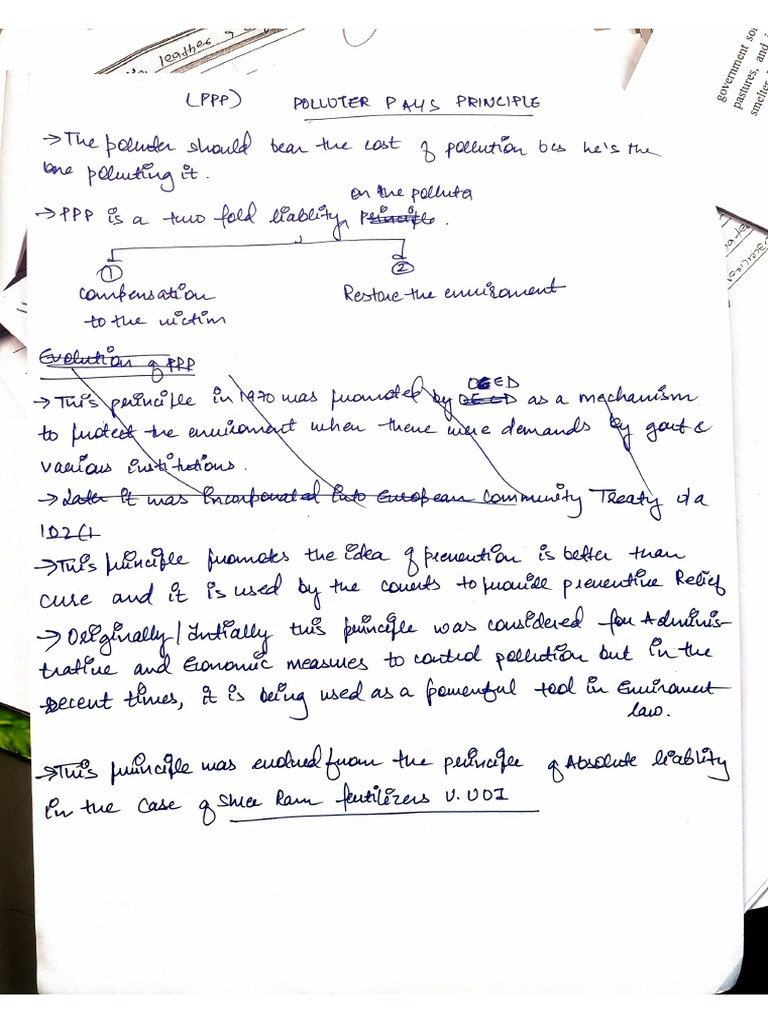 leather &
government soi
pastures, and i
smelter
(PPP) POLLUTER PAYS PRINCIPLE
→ The polluter should bear the cost of pollution bcs he's the
one polluting it.
on the polluter
→ PPP is a two fold liablity, Principle.
① ②
Compensation Restore the enviroment
to the victim
Evolution of PPP
OECD
→ This principle in 1970 was promoted by OECD as a mechanism
to protect the enviroment when there were demands by govt &
various institutions.
→ Later it was incorporated into European Community Treaty
→ This principle promotes the idea of prevention is better than
cure and it is used by the courts to provide preventive Relief
→ Originally/Intially this principle was considered for Adminis-
trative and Economic measures to control pollution but in the
recent times, it is being used as a powerful tool in Enviroment
law.
→ This principle was evolved from the principle of Absolute liablity
in the case of Shree Ram fertilizers V. UOI